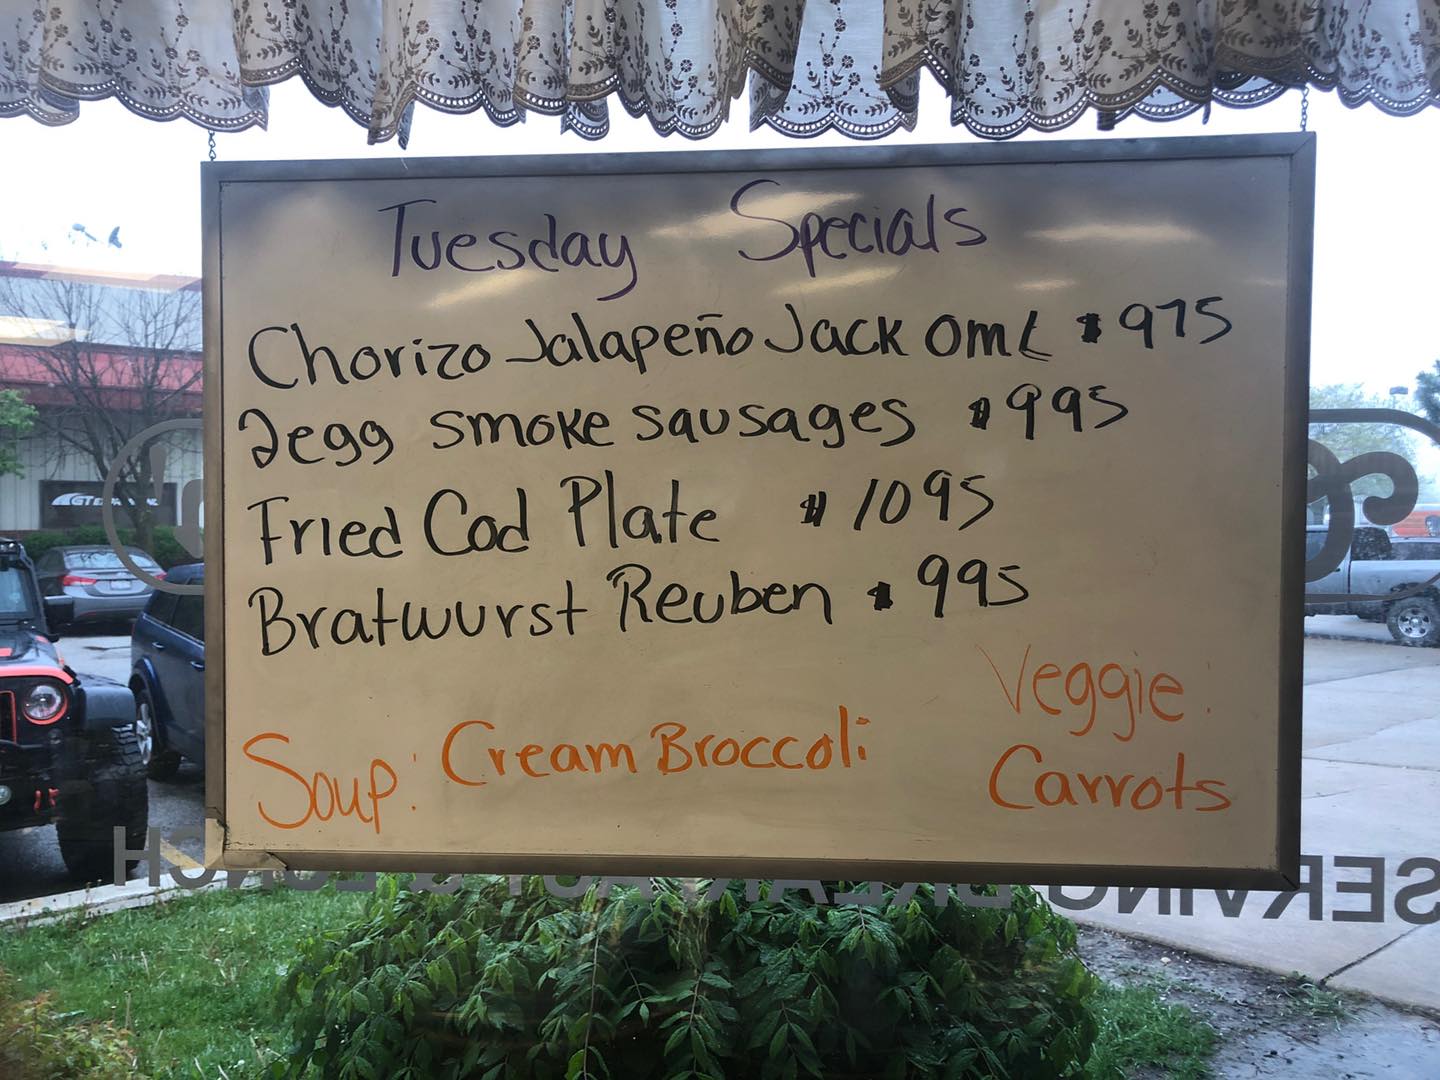 Tuesday Specials
Chorizo Jalapeño Jack Oml $975
2egg smoke sausages $995
Fried Cod Plate $1095
Bratwurst Reuben $995
Veggie:
Carrots
Soup: Cream Broccoli
SERVING BREAKFAST & LUNCH
GT